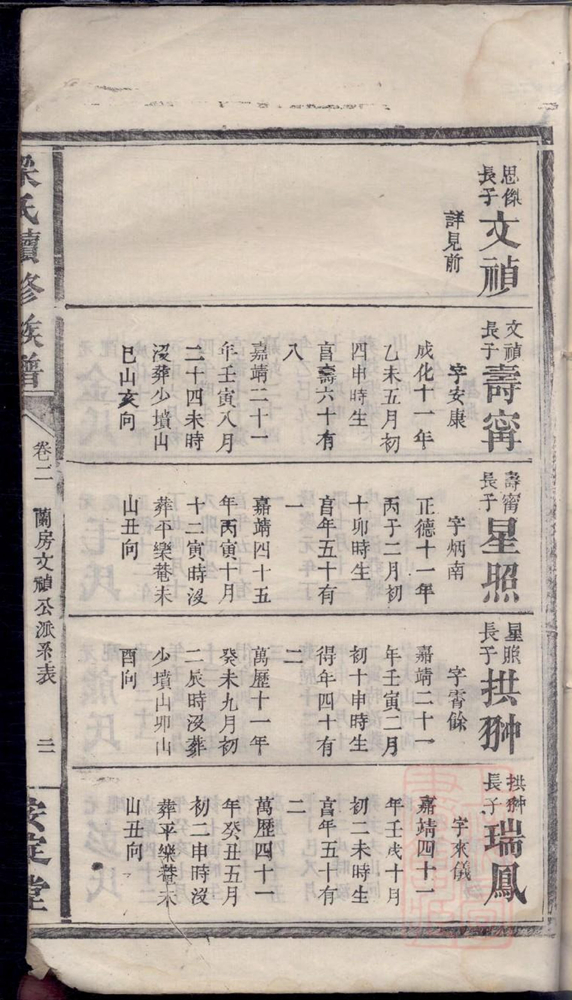 思傑長子
文禎
詳見前
文禎長子
壽甯
字安康
成化十一年
乙未五月初
四申時生
亯壽六十有
八
嘉靖二十一
年壬寅八月
二十四未時
沒葬少墳山
巳山亥向
壽甯長子
星照
字炳南
正德十一年
丙子二月初
十卯時生
亯年五十有
一
嘉靖四十五
年丙寅十月
十二寅時沒
葬平樂菴未
山丑向
星照長子
拱翀
字霄餘
嘉靖二十一
年壬寅二月
初十申時生
得年四十有
二
萬歷十一年
癸未九月初
二辰時沒葬
少墳山卯山
酉向
拱翀長子
瑞鳳
字來儀
嘉靖四十一
年壬戌十月
初二未時生
亯年五十有
二
萬歷四十一
年癸丑五月
初二申時沒
葬平樂菴未
山丑向
氏續修族譜
卷二
蘭房文禎公派系表
三
堂